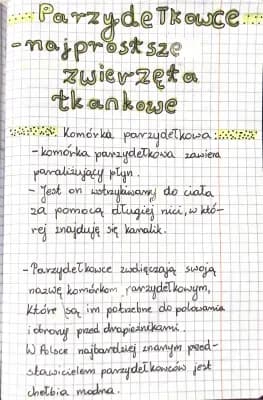 Parzydełkowce
-najprostsze
zwierzęta
tkankowe
Komórka parzydełkowa:
-komórka parzydełkowa zawiera
paraliżujący płyn.
- Jest on wstrzykiwany do ciała
za pomocą długiej nici, w któ-
rej znajduję się kanalik.
-Parzydełkowce zwdięczają swoją
nazwę komórkom parzydełkowym,
które są im potrzebne do polowania
i obrony przed drapieżnikami.
W Polsce najbardziej znanym przed-
stawicielem parzydełkowców jest
chełbia modra.